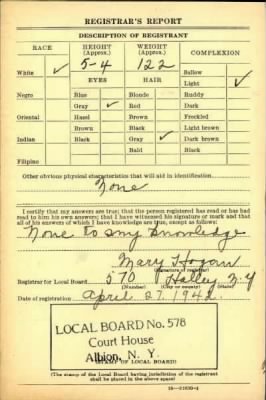 REGISTRAR'S REPORT
DESCRIPTION OF REGISTRANT
RACE HEIGHT (Approx.) WEIGHT (Approx.) COMPLEXION
5-4 122
White ✓ Sallow
EYES HAIR Light ✓
Negro Blue Blonde Ruddy
Gray ✓ Red Dark
Oriental Hazel Brown Freckled
Brown Black Light brown
Indian Black Gray ✓ Dark brown
Bald Black
Filipino
Other obvious physical characteristics that will aid in identification
None
I certify that my answers are true; that the person registered has read or has had
read to him his own answers; that I have witnessed his signature or mark and that
all of his answers of which I have knowledge are true, except as follows:
None to my knowledge
Mary Hogan
(Signature of registrar)
Registrar for Local Board 570 Holley N.Y
(Number) (City or county) (State)
Date of registration April 27. 1942
LOCAL BOARD No. 578
Court House
Albion, N. Y.
(STAMP OF LOCAL BOARD)
(The stamp of the Local Board having jurisdiction of the registrant
shall be placed in the above space)